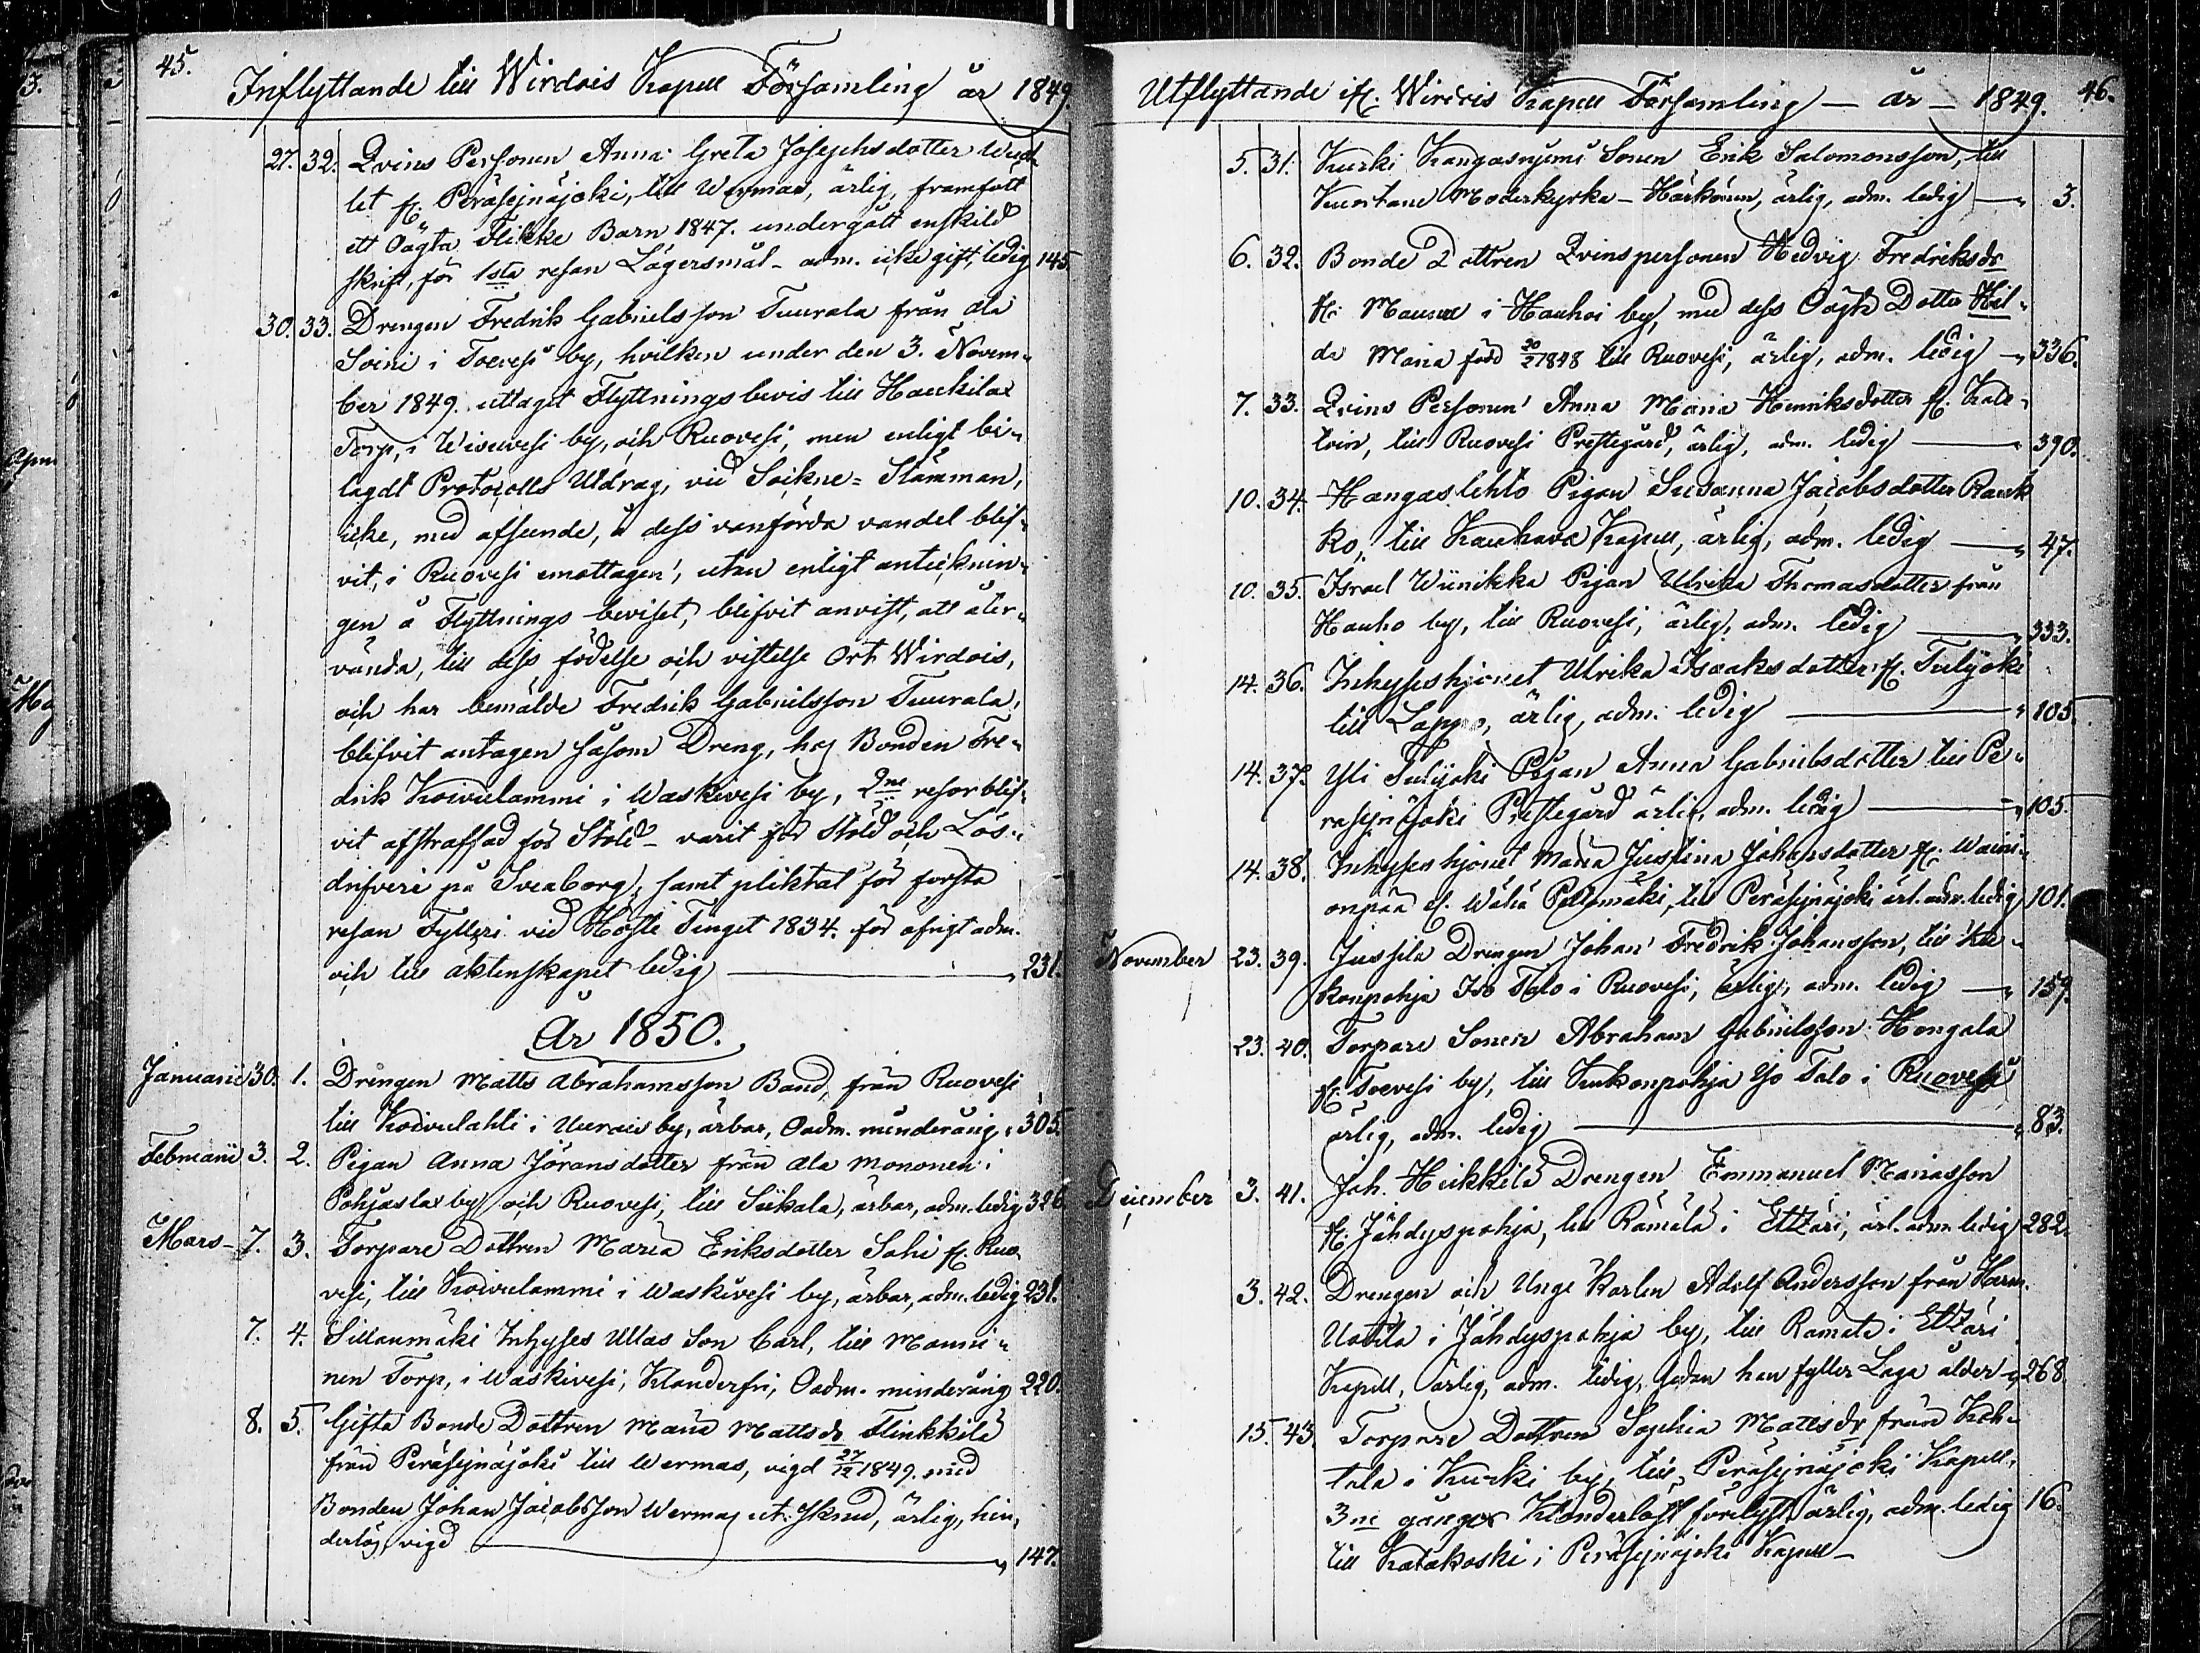 45.
Inflyttande till Wirdois Kapell Församling år 1849.
27. 32. Qvins Personen Anna Greta Josephsdotter
let fr. Peräsejnäjoki, till Wermas, ärlig, framfödt
ett Oägta Flikke Barn 1847. undergått enskild
skrift, för 1sta resan Lägersmål - adm. icke gift, ledig 145.
30. 33. Drengen Fredrik Gabrielsson Tuurala från Ala
Soini i Toevesi by, hvilken under den 3. Novem-
ber 1849. uttagit Flyttningsbevis till Haukilax
Torp, i Wisuvesi by, och Ruovesi, men enligt bi-
lagdt Protocolls Utdrag, vid Sockne-Stämman,
icke, med afseende, å dess vanförda vandel blif-
vit, i Ruovesi emottagen, utan enligt anteknin-
gen å Flyttnings beviset, blifvit anvist, att åter-
vända, till dess födelse och vistelse Ort Wirdois,
och har bemälde Fredrik Gabrielsson Tuurala,
blifvit antagen såsom Dreng, hos Bonden Fre-
drik Koivulammi i Waskivesi by, 2ne resor blif-
vit afstraffad för Stöld - varit för Stöld och Lös-
drifveri på Sveaborg, samt pliktat för första
resan Fylleri vid Höste Tinget 1834. för öfrigt adm.
och till äktenskapet ledig 231.
År 1850.
Januarii 30. 1. Drengen Matts Abrahamsson Band, från Ruovesi
till Koivulahti i Uurais by, ärbar, Oadm. minderårig 305.
Februarii 3. 2. Pigan Anna Jöransdotter från Ala Mononen i
Pohjaslax by och Ruovesi, till Siikala, ärbar, adm. ledig 326
Mars - 7. 3. Torpare Dottren Maria Eriksdotter Sahi fr. Ruo-
vesi, till Koivulammi i Waskivesi by, ärbar, adm. ledig 231.
7. 4. Sillanmäki Inhyses Ullas Son Carl, till Manni-
nen Torp, i Waskivesi, Klanderfri, Oadm. minderårig 220.
8. 5. Gifta Bonde Dottren Maria Mattsdr Flinkkilä
från Peräsejnäjoki till Wermas, vigd 27/12 1849. med
Bonden Johan Jacobsson Wermas ut. skrud, ärlig, hin-
derlös, vigd 147.
Utflyttande ifr. Wirdois Kapell Församling - år - 1849. 46.
5. 31. Kurki Kangasniemi Sonen Erik Salomonsson, till
Kuortane Moderkyrka - Härkönen, ärlig, adm. ledig 3.
6. 32. Bonde Dottren Qvinspersonen Hedvig Fredriksdr
fr. i Hauhoi by, med dess Oägta Dotter Hil-
da Maria född 20/2 1848 till Ruovesi, ärlig, adm. ledig 336.
7. 33. Qvins Personen Anna Maria Henriksdotter fr. Kale-
toin, till Ruovesi Prestegård, ärlig, adm. ledig 390.
10. 34. Hangaslehto Pigan Susanna Jacobsdotter Rauk
ko, till Kauhava Kapell, ärlig, adm. ledig 47.
10. 35. Israel Wiinikka Pigan Ulrika Thomasdotter från
Hauho by, till Ruovesi, ärlig, adm. ledig 333.
14. 36. Inhyseshjonet Ulrika Isaaksdotter fr. Tulijoki
till Lappo, ärlig, adm. ledig 105.
14. 37. Yli Tulijoki Pigan Anna Gabrielsdotter till Pe-
räsejnäjoki Prestegård ärlig, adm. ledig 105.
14. 38. Inhyseshjonet Maria Justina Johansdotter fr. Waini-
onpää till Peräsejnäjoki ärl. adm. ledig 101.
November 23. 39. Jussila Drengen Johan Fredrik Johansson, till Kur-
konpohja Iso Talo i Ruovesi, ärlig, adm. ledig 159.
23. 40. Torpare Sonen Abraham Gabrielsson Hongala
fr. Toevesi by, till Kurkonpohja Yso Talo i Ruovesi
ärlig, adm. ledig 83.
December 3. 41. Joh. Heikkilä Drengen Emmanuel Mariasson
fr. Jähdyspohja, till Rämälä i Etzäri, ärl. adm. ledig 282.
3. 42. Drengen och Unge Karlen Adolf Andersson från Harm.
Uotila i Jähdyspohja by, till Ramala i Etzäri
Kapell, ärlig, adm. ledig, sedan han fyller Laga ålder 268
15. 43. Torpare Dottren Sophia Mattsdr från Koh-
tala i Kurki by, till Peräsejnäjoki Kapell,
3ne gånger Klanderlöst förelyst, ärlig, adm. ledig 16.
till Katakoski i Peräsejnäjoki Kapell -